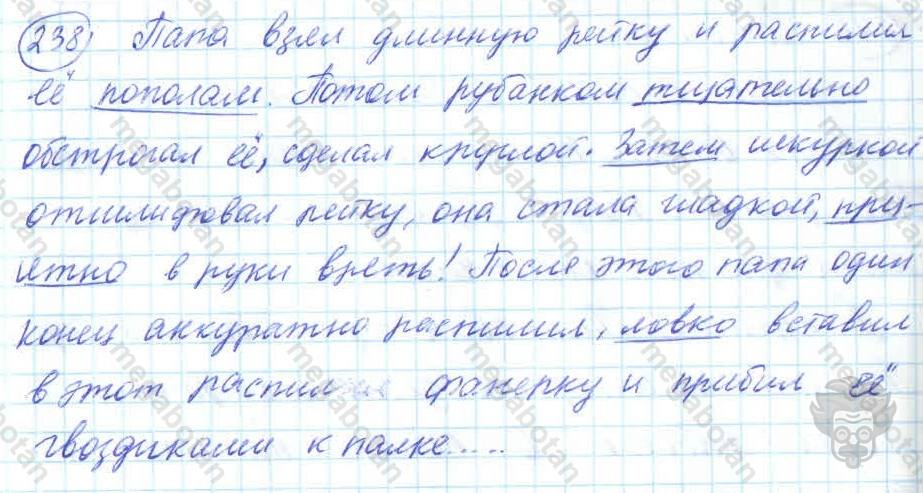 238) Папа взял длинную рейку и распилил
её пополам. Потом рубанком тщательно
обстрогал её, сделал круглой. Затем шкуркой
отшлифовал рейку, она стала гладкой, при-
ятно в руки взять! После этого папа один
конец аккуратно распилил, ловко вставил
в этот распил фанерку и прибил её
гвоздиками к палке.....
megabotan